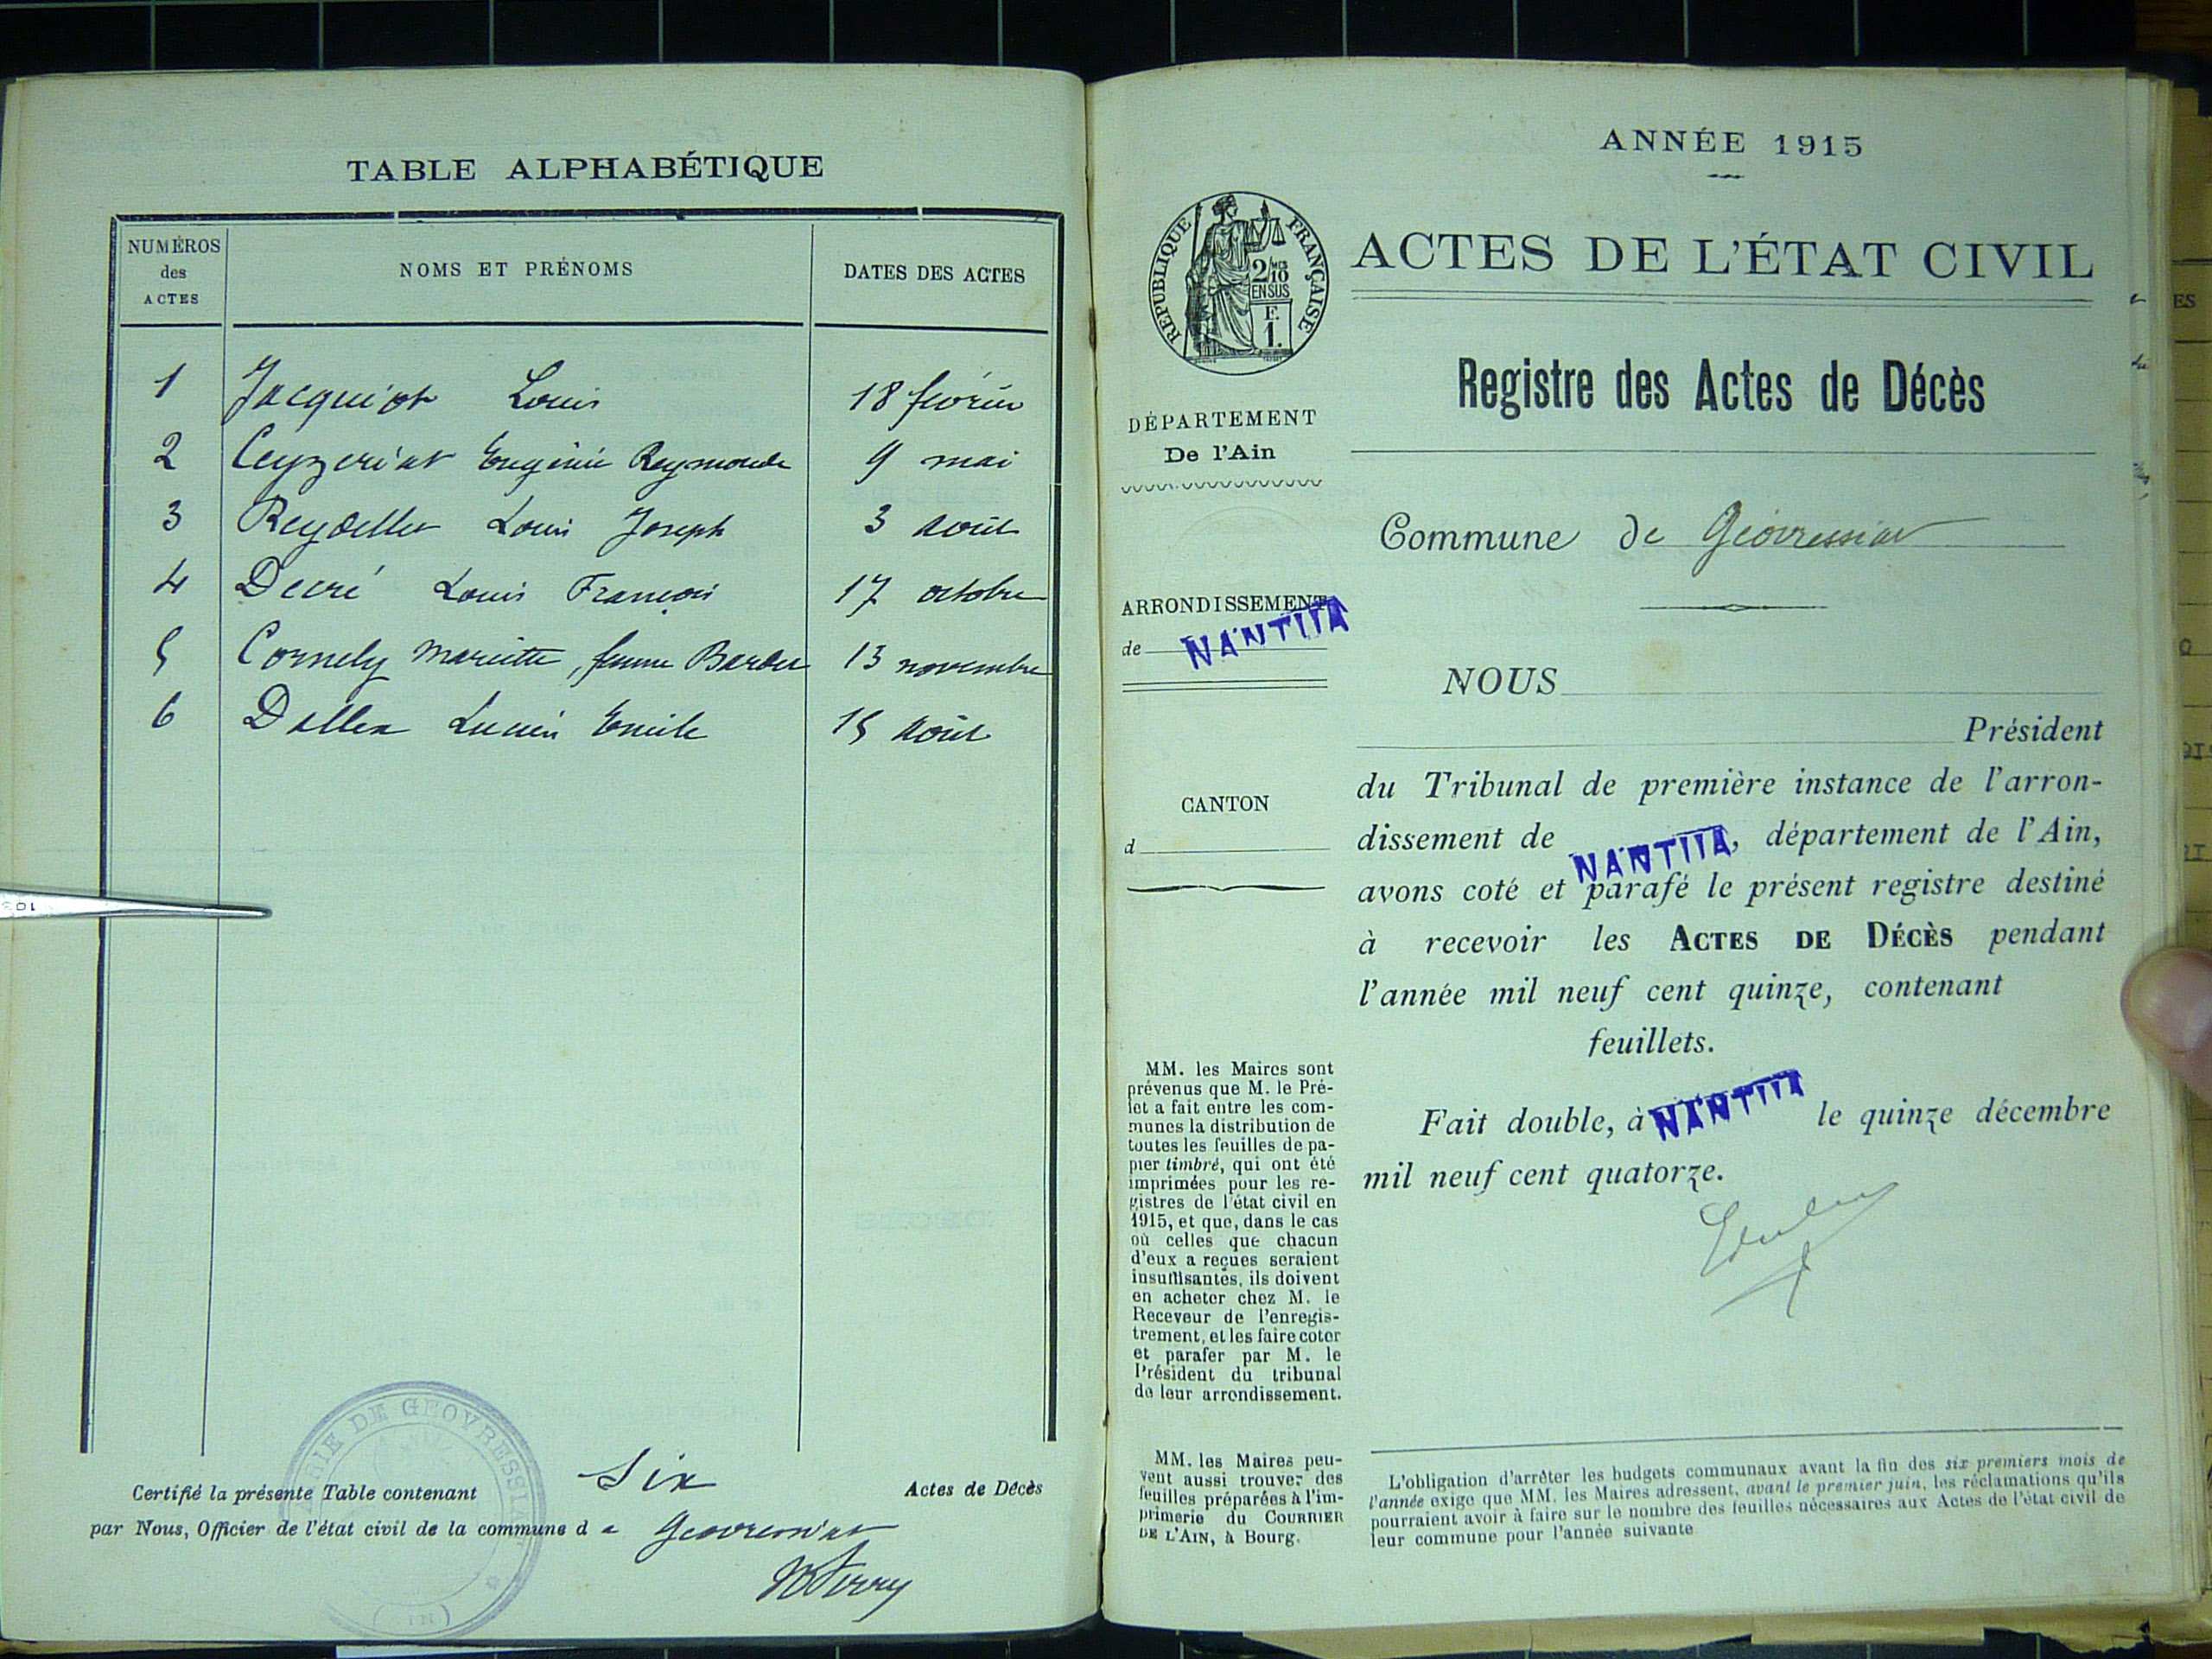 TABLE ALPHABÉTIQUE
NUMÉROS
des
ACTES
NOMS ET PRÉNOMS
DATES DES ACTES
1 Jacquiot Louis 18 février
2 Ceyzeriat Eugénie Raymonde 9 mai
3 Reydellet Louis Joseph 3 août
4 Decré Louis François 17 octobre
5 Cornely Mariette, femme 13 novembre
6 Lucien Emile 15 août
Certifié la présente Table contenant Six Actes de Décès
par Nous, Officier de l'état civil de la commune de Géovressiat
MAIRIE DE GEOVRESSIAT
ANNÉE 1915
RÉPUBLIQUE FRANÇAISE
2/10 MES
EN SUS
E.
1.
ACTES DE L'ÉTAT CIVIL
Registre des Actes de Décès
DÉPARTEMENT
De l'Ain
Commune de Géovressiat
ARRONDISSEMENT
de NANTUA
NOUS
Président
du Tribunal de première instance de l'arron-
dissement de NANTUA, département de l'Ain,
avons coté et parafé le présent registre destiné
à recevoir les ACTES DE DÉCÈS pendant
l'année mil neuf cent quinze, contenant
feuillets.
Fait double, à NANTUA le quinze décembre
mil neuf cent quatorze.
CANTON
d
MM. les Maires sont
prévenus que M. le Pré-
fet a fait entre les com-
munes la distribution de
toutes les feuilles de pa-
pier timbré, qui ont été
imprimées pour les re-
gistres de l'état civil en
1915, et que, dans le cas
où celles que chacun
d'eux a reçues seraient
insuffisantes, ils doivent
en acheter chez M. le
Receveur de l'enregis-
trement, et les faire coter
et parafer par M. le
Président du tribunal
de leur arrondissement.
MM. les Maires peu-
vent aussi trouver des
feuilles préparées à l'im-
primerie du COURRIER
DE L'AIN, à Bourg.
L'obligation d'arrêter les budgets communaux avant la fin des six premiers mois de
l'année exige que MM. les Maires adressent, avant le premier juin, les réclamations qu'ils
pourraient avoir à faire sur le nombre des feuilles nécessaires aux Actes de l'état civil de
leur commune pour l'année suivante